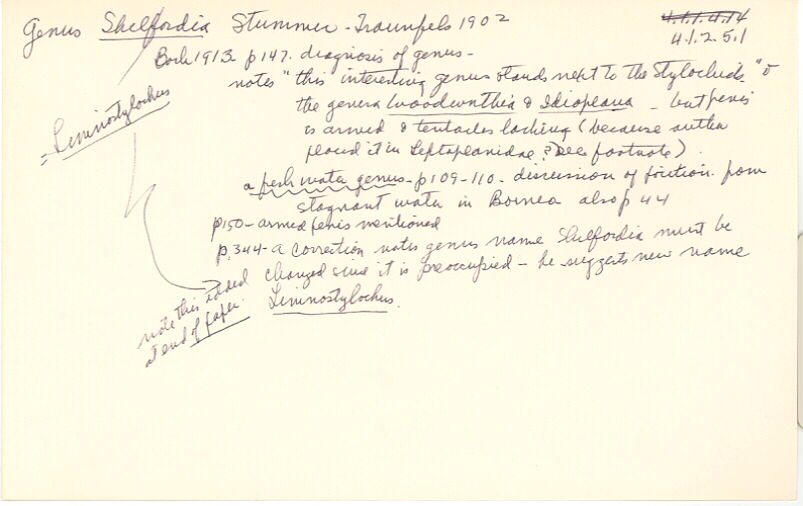 Genus Shelfordia Stummer-Traunfels 1902
4.1.1.4.14
4.1.2.5.1
Bock 1913 p147. diagnosis of genus -
notes "this interesting genus stands next to the Stylochids" &
the genera Woodworthia & Idioplana - but penis
is armed & tentacles lacking (because author
placed it in Leptoplanidae. see footnote).
= Liminostylochus
a fresh water genus - p109-110 - discussion of position. from
stagnant water in Borneo also p 44
p150 - armed penis mentioned
p.344 - a correction notes genus name Shelfordia must be
changed since it is preoccupied - he suggests new name
Liminostylochus.
note this added
at end of paper.